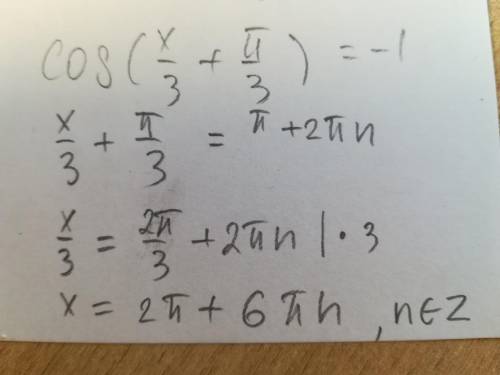 cos(x/3 + π/3) = -1
x/3 + π/3 = π + 2πn
x/3 = 2π/3 + 2πn | · 3
x = 2π + 6πn, n∈Z